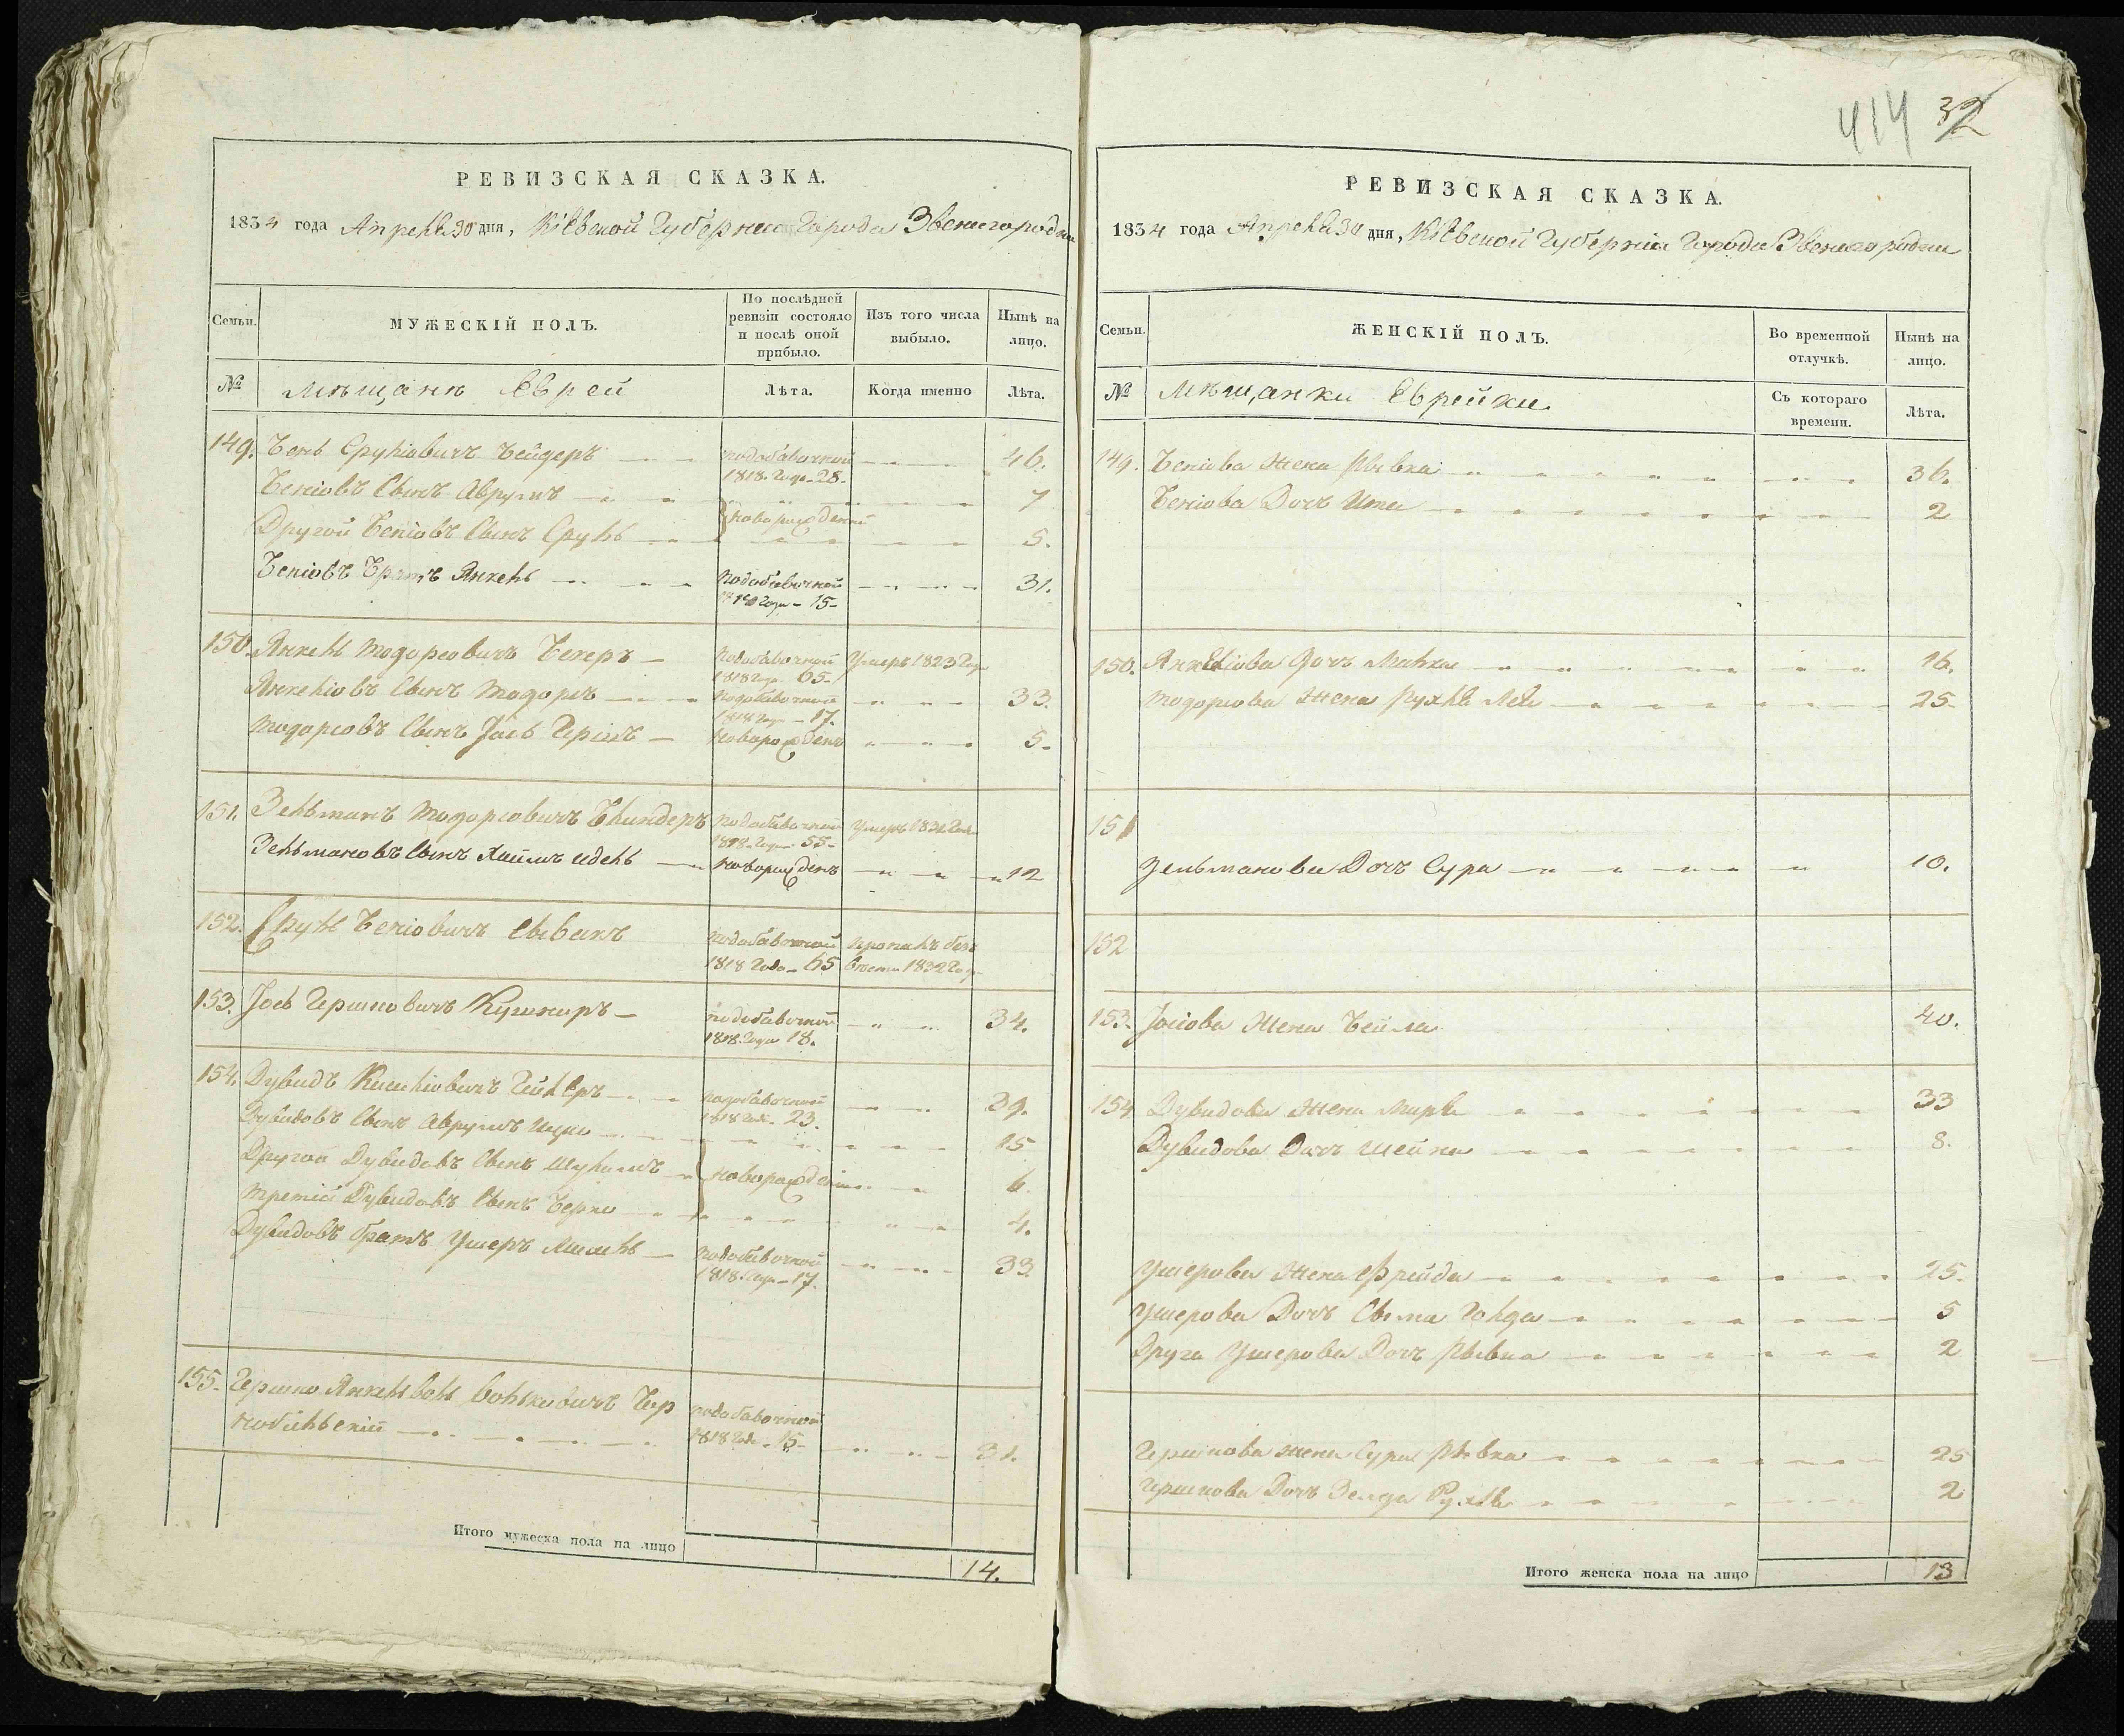 414 32
РЕВИЗСКАЯ СКАЗКА.
1834 года Апреля 30 дня, Кіевской Губерніи Города Звенигородки
Семьи.
МУЖЕСКІЙ ПОЛЪ.
По послѣдней ревизіи состояло и послѣ оной прибыло.
Изъ того числа выбыло.
Нынѣ на лицо.
№ Мѣщанѣ Евреи Лѣта. Когда именно Лѣта.
149. Бень Сруліовичъ Бейдеръ подобавочной 46.
1818. Года - 28.
Беніовъ Сынъ Аврумъ 7
новорожденные
Другой Беніовъ Сынъ Сруль 5.
Беніовъ Братъ Янкель подобавочной 31.
1818 Года - 15 -
150. Янкель Тодоровичъ Бекеръ подобавочной Умеръ 1823 Года
1818 Года 65 -
Янкеліовъ Сынъ Тодоръ подобавочной 33.
1818 Года - 17.
Тодоровъ Сынъ Іось Гершъ новорожденъ 5 -
151. Зельманъ Тодоровичъ Блиндеръ подобавочной Умеръ Года
1818 Года 55 -
Зельмановъ Сынъ Хаимъ Идель новорожденъ 12
152. Сруль Беніовичъ подобавочной пропалъ безъ
1818 Года - 65 вѣсти 1832 Года
153. Іось Гершковичъ Кушниръ подобавочной 34.
1818 Года 18.
154. Дувидъ подобавочной 39.
1818 Года - 23.
Дувидовъ Сынъ Аврумъ Ицко 15
Другой Дувидовъ Сынъ Шулимъ новорожденные 6.
Третій Дувидовъ Сынъ Берко 4.
Дувидовъ братъ Умеръ подобавочной 33.
1818 Года - 17.
155. Гершко Янкель Волковичъ Чер подобавочной
нобильскій 1818 Года - 15 - 31.
Итого мужеска пола на лицо 14.
РЕВИЗСКАЯ СКАЗКА.
1834 года Апреля 30 дня, Кіевской Губерніи Города Звенигородки
Семьи.
ЖЕНСКІЙ ПОЛЪ.
Во временной отлучкѣ.
Нынѣ на лицо.
№ Мѣщанки Еврейки. Съ котораго времени. Лѣта.
149. Беніова Жена Рывка 36.
Беніова Дочь Ита 2
150. Янкеліова Дочь Малка 16.
Тодорова Жена Рухля Лея 25 -
151
Зельманова Дочь Сура 10.
152
153. Іосіова Жена Бейла 40.
154. Дувидова Жена Мирля 33
Дувидова Дочь Шейна 8.
Ушерова Жена Фрейда 25.
Ушерова Дочь Сима Голда 5
Друга Ушерова Дочь Рывка 2
Гершкова жена Сура Рывка 25
Гершкова Дочь Зелда Рухля 2
Итого женска пола на лицо 13